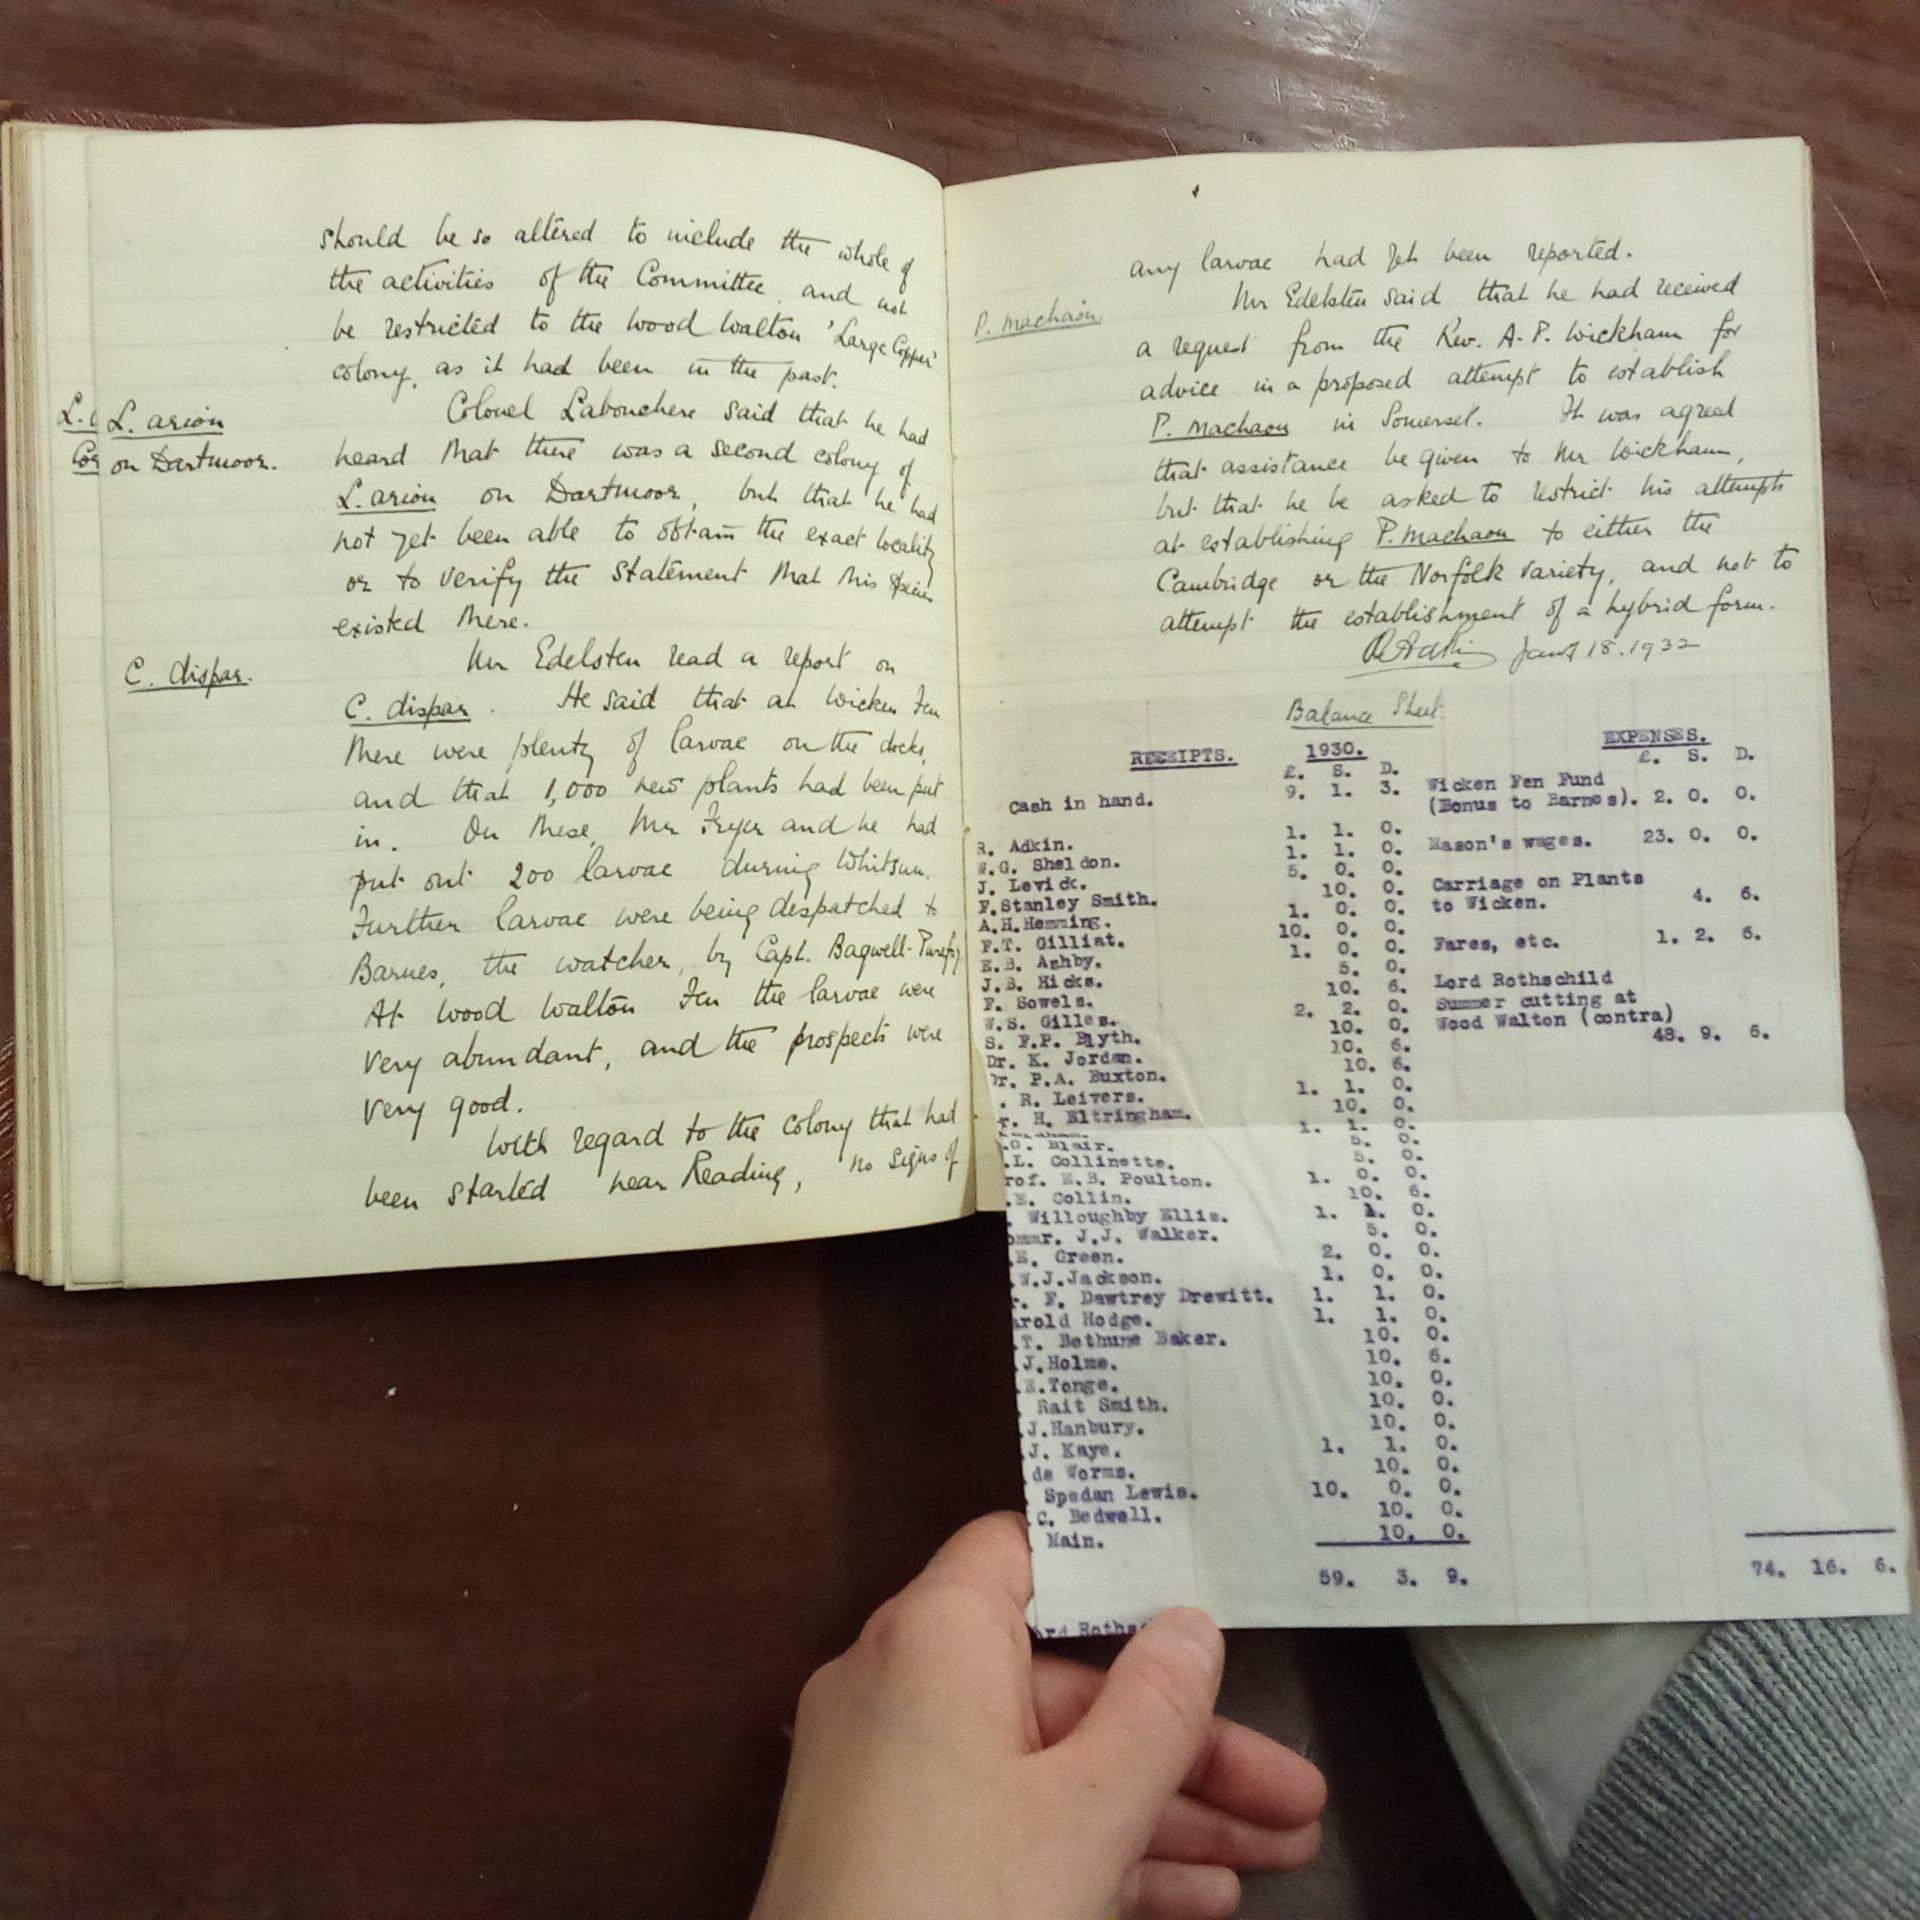 should be so altered to include the whole of
the activities of the Committee, and not
be restricted to the Wood Walton 'Large Copper'
colony, as it had been in the past.
L. arion
on Dartmoor.
Colonel Labouchere said that he had
heard that there was a second colony of
L. arion on Dartmoor, but that he had
not yet been able to obtain the exact locality
or to verify the statement that this species
existed there.
C. dispar.
Mr Edelsten read a report on
C. dispar. He said that at Wicken Fen
there were plenty of larvae on the docks,
and that 1,000 new plants had been put
in. On these, Mr Fryer and he had
put out 200 larvae during Whitsun.
Further larvae were being despatched to
Barnes, the watcher, by Capt. Bagwell-Purefoy
At Wood Walton Fen the larvae were
very abundant, and the prospects were
very good.
With regard to the colony that had
been started near Reading, no signs of
any larvae had yet been reported.
P. machaon
Mr Edelsten said that he had received
a request from the Rev. A. P. Wickham for
advice in a proposed attempt to establish
P. machaon in Somerset. It was agreed
that assistance be given to Mr Wickham,
but that he be asked to restrict his attempts
at establishing P. machaon to either the
Cambridge or the Norfolk variety, and not to
attempt the establishment of a hybrid form.
R Adkin Jany 18. 1932
Balance Sheet
RECEIPTS. 1930. EXPENSES.
£. S. D. £. S. D.
Cash in hand. 9. 1. 3. Wicken Fen Fund
(Bonus to Barnes). 2. 0. 0.
R. Adkin. 1. 1. 0.
W.G. Sheldon. 1. 1. 0. Mason's wages. 23. 0. 0.
J. Levick. 5. 0. 0.
F.Stanley Smith. 10. 0. Carriage on Plants
A.H.Hemming. 1. 0. 0. to Wicken. 4. 6.
F.T. Gilliat. 10. 0. 0.
E.B. Ashby. 1. 0. 0. Fares, etc. 1. 2. 6.
J.B. Hicks. 5. 0.
F. Sowels. 10. 6. Lord Rothschild
W.S. Gilles. 2. 2. 0. Summer cutting at
S. F.P. Blyth. 10. 0. Wood Walton (contra)
48. 9. 6.
Dr. K. Jordan. 10. 6.
Dr. P.A. Buxton. 10. 6.
. R. Leivers. 1. 1. 0.
r. H. Eltringham. 10. 0.
1. 1. 0.
.G. Blair. 5. 0.
.L. Collinette. 5. 0.
rof. E.B. Poulton. 1. 0. 0.
.E. Collin. 10. 6.
Willoughby Ellis. 1. 1. 0.
ommr. J.J. Walker. 5. 0.
.E. Green. 2. 0. 0.
.W.J.Jackson. 1. 0. 0.
r. F. Dawtrey Drewitt. 1. 1. 0.
arold Hodge. 1. 1. 0.
.T. Bethune Baker. 10. 0.
.J.Holme. 10. 6.
.E.Tonge. 10. 0.
Rait Smith. 10. 0.
.J.Hanbury. 10. 0.
.J. Kaye. 1. 1. 0.
de Worms. 10. 0.
Spedan Lewis. 10. 0. 0.
.C. Bedwell. 10. 0.
Main. 10. 0.
59. 3. 9. 74. 16. 6.